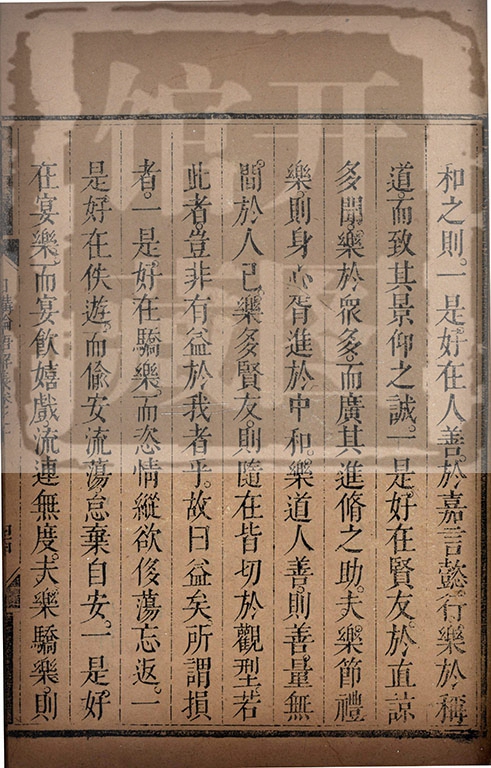 和之則。一是。好在人善。於嘉言懿。行樂於稱
道。而致其景仰之誠。一是。好在賢友。於直諒
多聞。樂於衆多。而廣其進脩之助。夫樂節禮
樂。則身心胥進於中和。樂道人善。則善量無
間於人己。樂多賢友。則隨在皆切於觀型。若
此者。豈非有益於我者乎。故曰益矣。所謂損
者。一是。好在驕樂。而恣情縱欲侈蕩忘返。一
是好在佚遊。而偸安流蕩怠棄自安。一是好
在宴樂。而宴飮嬉戲流連無度。夫樂驕樂。則